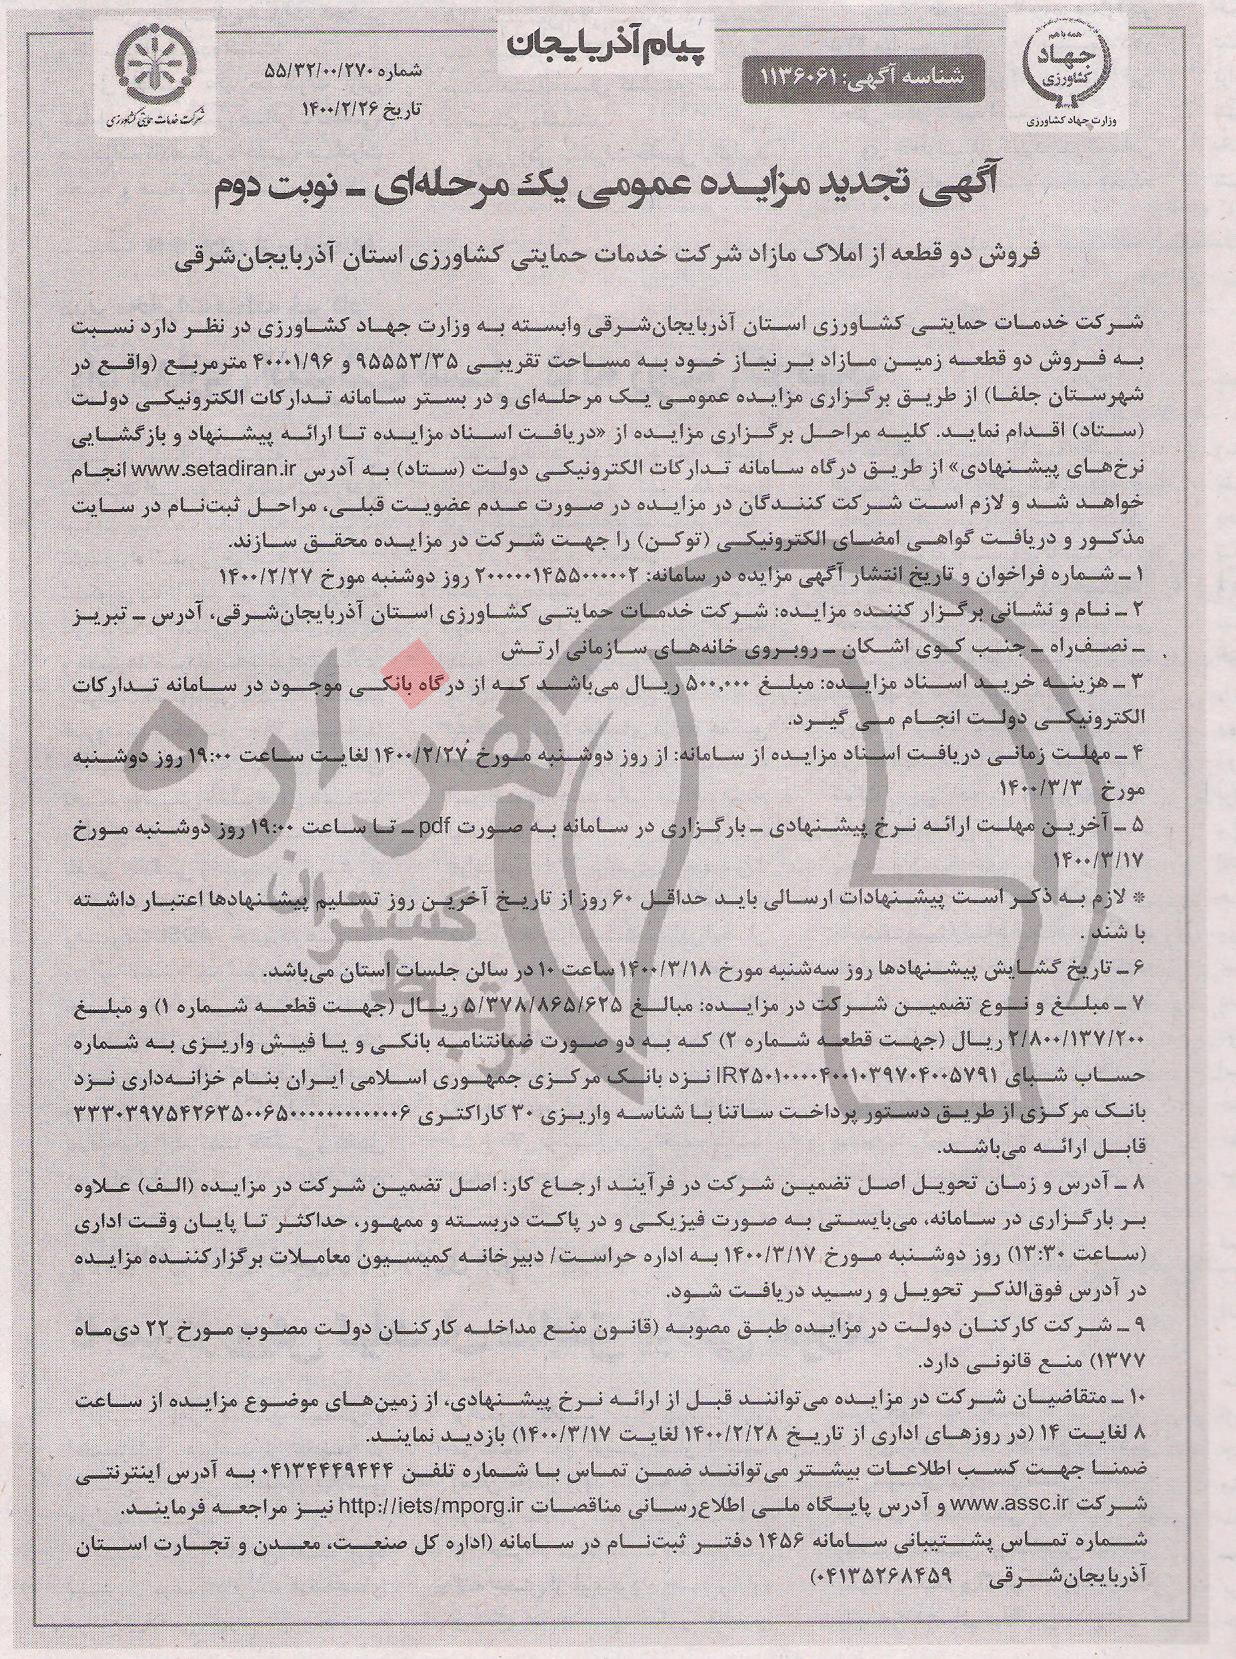 همه با هم
جهاد
کشاورزی
وزارت جهاد کشاورزی
پیام آذربایجان
شناسه آگهی: ۱۱۳۶۰۶۱
شماره ۵۵/۳۲/۰۰/۲۷۰
تاریخ ۱۴۰۰/۲/۲۶
شرکت خدمات حمایتی کشاورزی
آگهی تجدید مزایده عمومی یک مرحله‌ای ـ نوبت دوم
فروش دو قطعه از املاک مازاد شرکت خدمات حمایتی کشاورزی استان آذربایجان‌شرقی
شرکت خدمات حمایتی کشاورزی استان آذربایجان‌شرقی وابسته به وزارت جهاد کشاورزی در نظر دارد نسبت
به فروش دو قطعه زمین مازاد بر نیاز خود به مساحت تقریبی ۹۵۵۵۳/۳۵ و ۴۰۰۰۱/۹۶ مترمربع (واقع در
شهرستان جلفا) از طریق برگزاری مزایده عمومی یک مرحله‌ای و در بستر سامانه تدارکات الکترونیکی دولت
(ستاد) اقدام نماید. کلیه مراحل برگزاری مزایده از «دریافت اسناد مزایده تا ارائه پیشنهاد و بازگشایی
نرخ‌های پیشنهادی» از طریق درگاه سامانه تدارکات الکترونیکی دولت (ستاد) به آدرس www.setadiran.ir انجام
خواهد شد و لازم است شرکت کنندگان در مزایده در صورت عدم عضویت قبلی، مراحل ثبت‌نام در سایت
مذکور و دریافت گواهی امضای الکترونیکی (توکن) را جهت شرکت در مزایده محقق سازند.
۱ ـ شماره فراخوان و تاریخ انتشار آگهی مزایده در سامانه: ۲۰۰۰۰۰۱۴۵۵۰۰۰۰۰۲ روز دوشنبه مورخ ۱۴۰۰/۲/۲۷
۲ ـ نام و نشانی برگزار کننده مزایده: شرکت خدمات حمایتی کشاورزی استان آذربایجان‌شرقی، آدرس ـ تبریز
ـ نصف‌راه ـ جنب کوی اشکان ـ روبروی خانه‌های سازمانی ارتش
۳ ـ هزینه خرید اسناد مزایده: مبلغ ۵۰۰,۰۰۰ ریال می‌باشد که از درگاه بانکی موجود در سامانه تدارکات
الکترونیکی دولت انجام می گیرد.
۴ ـ مهلت زمانی دریافت اسناد مزایده از سامانه: از روز دوشنبه مورخ ۱۴۰۰/۲/۲۷ لغایت ساعت ۱۹:۰۰ روز دوشنبه
مورخ ۱۴۰۰/۳/۳
۵ ـ آخرین مهلت ارائه نرخ پیشنهادی ـ بارگزاری در سامانه به صورت pdf ـ تا ساعت ۱۹:۰۰ روز دوشنبه مورخ
۱۴۰۰/۳/۱۷
* لازم به ذکر است پیشنهادات ارسالی باید حداقل ۶۰ روز از تاریخ آخرین روز تسلیم پیشنهادها اعتبار داشته
با شند .
۶ ـ تاریخ گشایش پیشنهادها روز سه‌شنبه مورخ ۱۴۰۰/۳/۱۸ ساعت ۱۰ در سالن جلسات استان می‌باشد.
۷ ـ مبلغ و نوع تضمین شرکت در مزایده: مبالغ ۵/۳۷۸/۸۶۵/۶۲۵ ریال (جهت قطعه شماره ۱) و مبلغ
۲/۸۰۰/۱۳۷/۲۰۰ ریال (جهت قطعه شماره ۲) که به دو صورت ضمانتنامه بانکی و یا فیش واریزی به شماره
حساب شبای IR۲۵۰۱۰۰۰۰۴۰۰۱۰۳۹۷۰۴۰۰۵۷۹۱ نزد بانک مرکزی جمهوری اسلامی ایران بنام خزانه‌داری نزد
بانک مرکزی از طریق دستور پرداخت ساتنا با شناسه واریزی ۳۰ کاراکتری ۳۳۳۰۳۹۷۵۴۲۶۳۵۰۰۶۵۰۰۰۰۰۰۰۰۰۰۰۰۶
قابل ارائه می‌باشد.
۸ ـ آدرس و زمان تحویل اصل تضمین شرکت در فرآیند ارجاع کار: اصل تضمین شرکت در مزایده (الف) علاوه
بر بارگزاری در سامانه، می‌بایستی به صورت فیزیکی و در پاکت دربسته و ممهور، حداکثر تا پایان وقت اداری
(ساعت ۱۳:۳۰) روز دوشنبه مورخ ۱۴۰۰/۳/۱۷ به اداره حراست/ دبیرخانه کمیسیون معاملات برگزارکننده مزایده
در آدرس فوق‌الذکر تحویل و رسید دریافت شود.
۹ ـ شرکت کارکنان دولت در مزایده طبق مصوبه (قانون منع مداخله کارکنان دولت مصوب مورخ ۲۲ دی‌ماه
۱۳۷۷) منع قانونی دارد.
۱۰ ـ متقاضیان شرکت در مزایده می‌توانند قبل از ارائه نرخ پیشنهادی، از زمین‌های موضوع مزایده از ساعت
۸ لغایت ۱۴ (در روزهای اداری از تاریخ ۱۴۰۰/۲/۲۸ لغایت ۱۴۰۰/۳/۱۷) بازدید نمایند.
ضمنا جهت کسب اطلاعات بیشتر می‌توانند ضمن تماس با شماره تلفن ۰۴۱۳۴۴۴۹۴۴۴ به آدرس اینترنتی
شرکت www.assc.ir و آدرس پایگاه ملی اطلاع‌رسانی مناقصات http://iets/mporg.ir نیز مراجعه فرمایند.
شماره تماس پشتیبانی سامانه ۱۴۵۶ دفتر ثبت‌نام در سامانه (اداره کل صنعت، معدن و تجارت استان
آذربایجان‌شرقی ۰۴۱۳۵۲۶۸۴۵۹)
هزاره
گستران
ارتباط